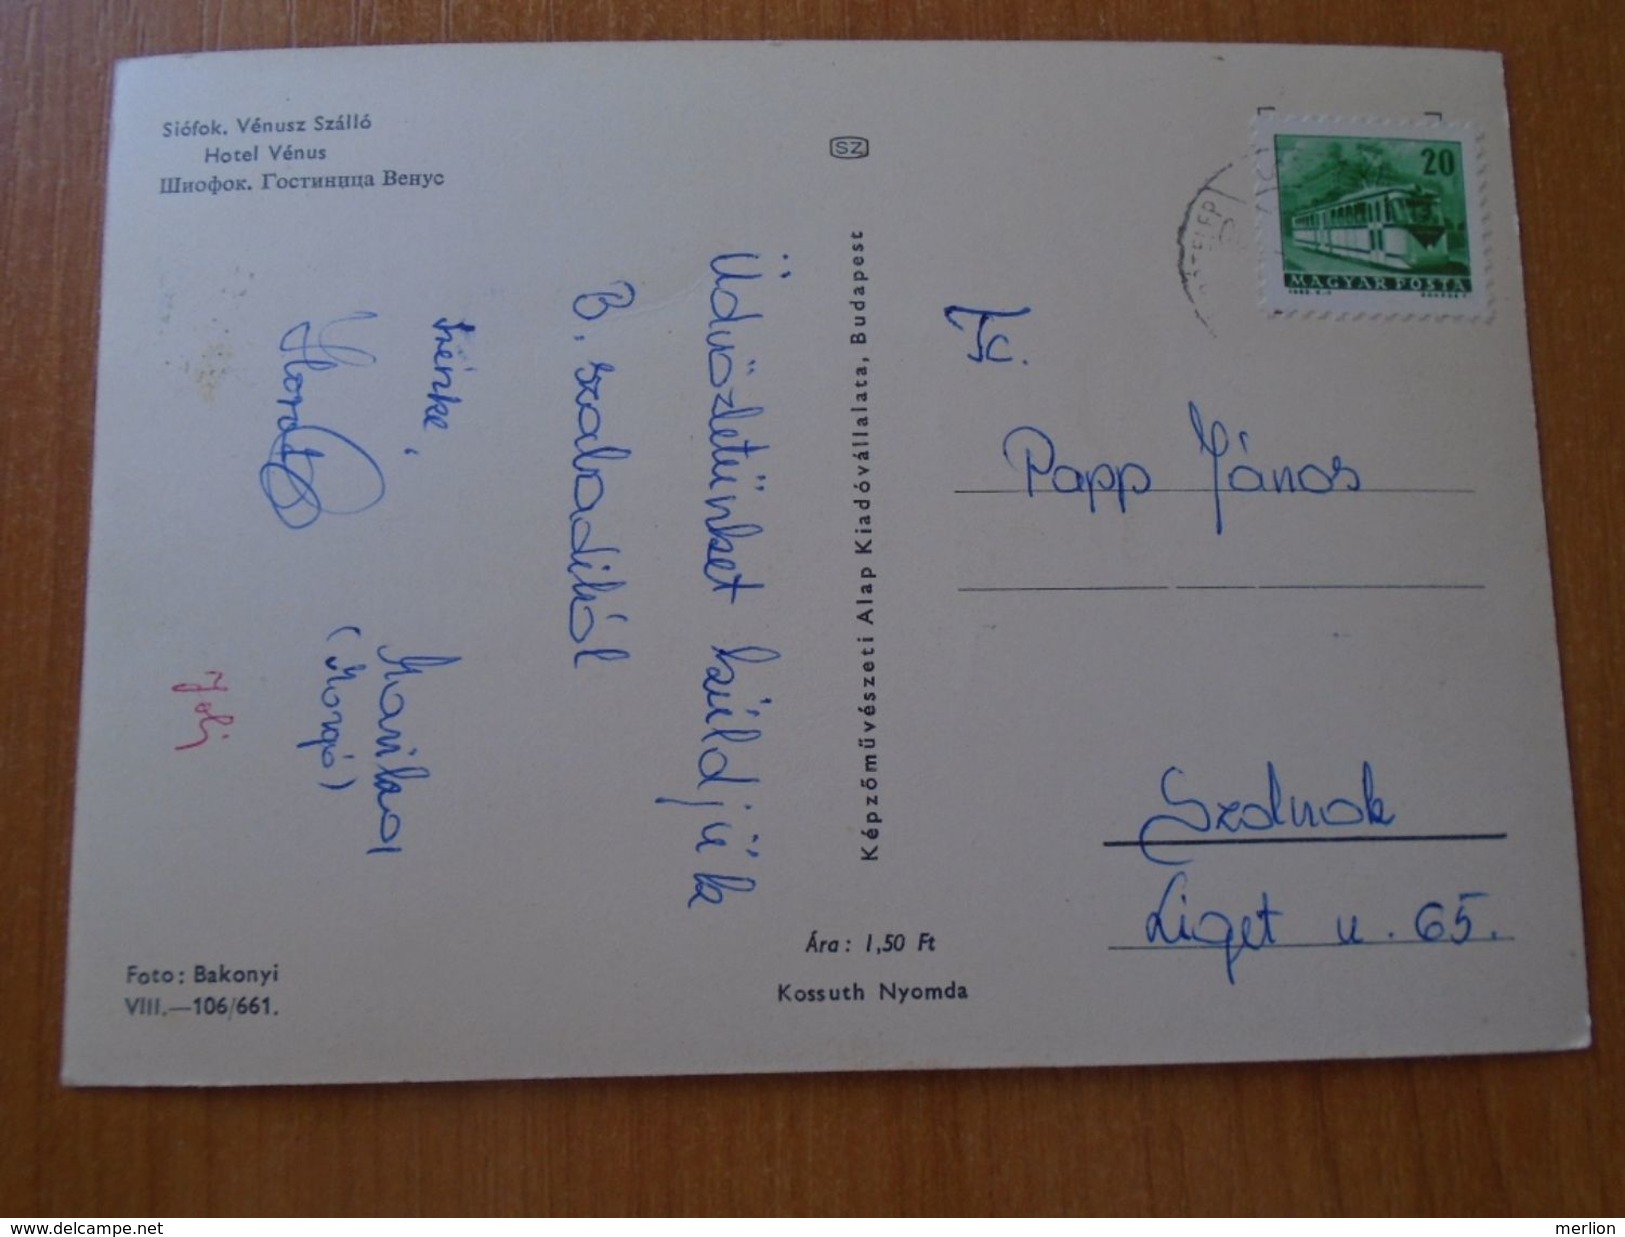 Siófok. Vénusz Szálló
Hotel Vénus
Шиофок. Гостиница Венус
SZ
20
MAGYAR POSTA
Üdvözletünket küldjük
B. szabadiból
Irénke,
Marikaoi
(Margó)
Joli
Képzőművészeti Alap Kiadóvállalata, Budapest
Papp János
Szolnok
Liget u. 65.
Ára: 1,50 Ft
Kossuth Nyomda
Foto: Bakonyi
VIII.—106/661.
www.delcampe.net
merlion